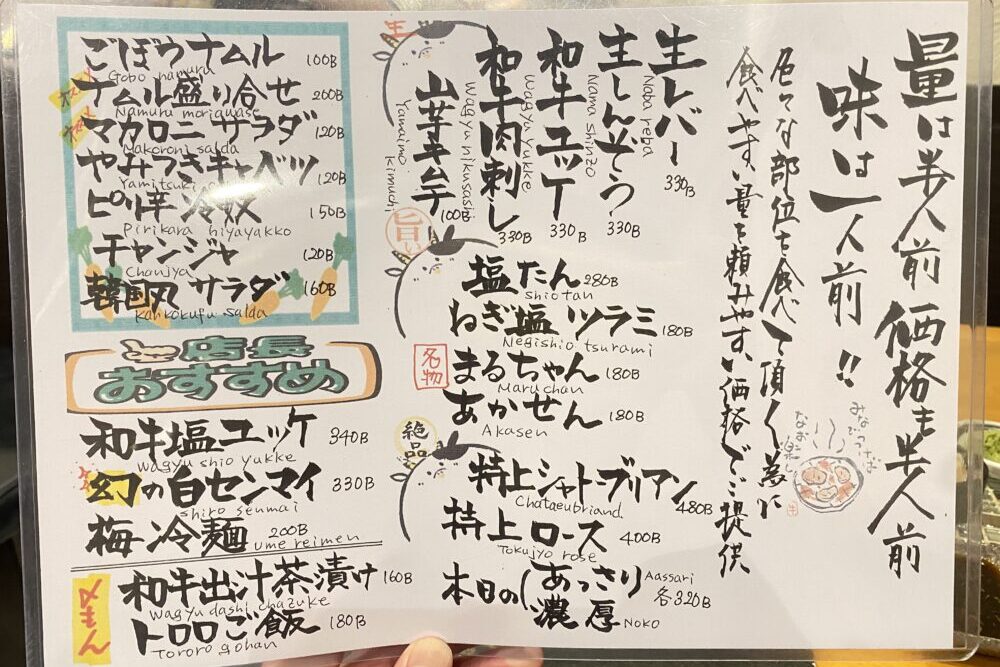 量は半人前 価格も半人前
味は一人前!!
色々な部位も食べて頂く為に
食べやすい量も頼みやすい価格でご提供
みなさんで
生
生レバー
Naba reba
330B
生しんぞう
Nama shinzo
330B
和牛ユッケ
Wagyu yukke
330B
和牛肉刺し
Wagyu nikusasi
330B
山芋キムチ
Yamaimo Kimuchi
100B
旨い
塩たん 280B
shiotan
ねぎ塩ツラミ 180B
Negishio tsurami
名物
まるちゃん 180B
Maruchan
あかせん 180B
Akasen
絶品
特上シャトーブリアン
Chataeubriand 480B
特上ロース 400B
Tokujyo rose
本日の(あっさり Aassari
濃厚 NOKO
各320B
ごぼうナムル 100B
Gobo namuru
ナムル盛り合せ 200B
Namuru moriawase
マカロニサラダ 120B
Makoroni salda
やみつきキャベツ 120B
Yamitsuki
ピリ辛冷奴 150B
Pirikara hiyayakko
チャンジャ 120B
Chanjya
韓国風サラダ 160B
Kankokufu salda
店長
おすすめ
和牛塩ユッケ 340B
Wagyu shio yukke
幻の白センマイ 330B
shiro senmai
梅冷麺 200B
ume reimen
〆はん
和牛出汁茶漬け 160B
Wagyu dashi chazuke
トロロご飯 180B
Tororo gohan